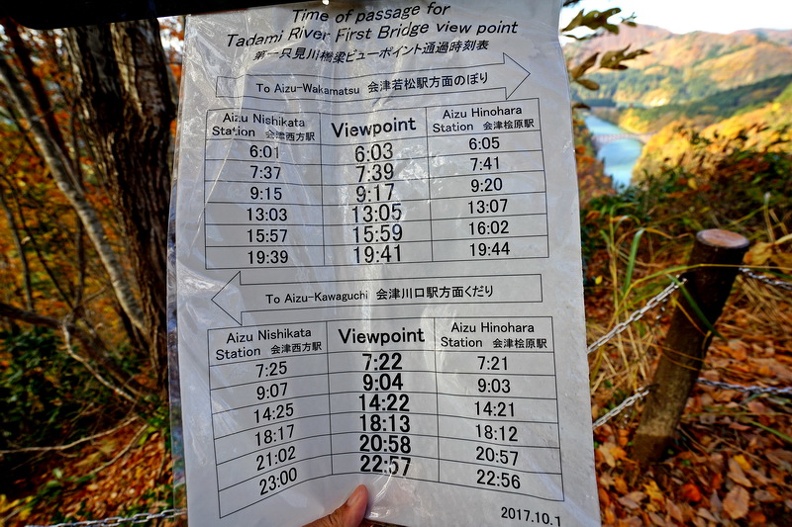 Time of passage for
Tadami River First Bridge view point
第一只見川橋梁ビューポイント通過時刻表
To Aizu-Wakamatsu 会津若松駅方面のぼり
Aizu Nishikata Station 会津西方駅 Viewpoint Aizu Hinohara Station 会津桧原駅
6:01 6:03 6:05
7:37 7:39 7:41
9:15 9:17 9:20
13:03 13:05 13:07
15:57 15:59 16:02
19:39 19:41 19:44
To Aizu-Kawaguchi 会津川口駅方面くだり
Aizu Nishikata Station 会津西方駅 Viewpoint Aizu Hinohara Station 会津桧原駅
7:25 7:22 7:21
9:07 9:04 9:03
14:25 14:22 14:21
18:17 18:13 18:12
21:02 20:58 20:57
23:00 22:57 22:56
2017.10.1